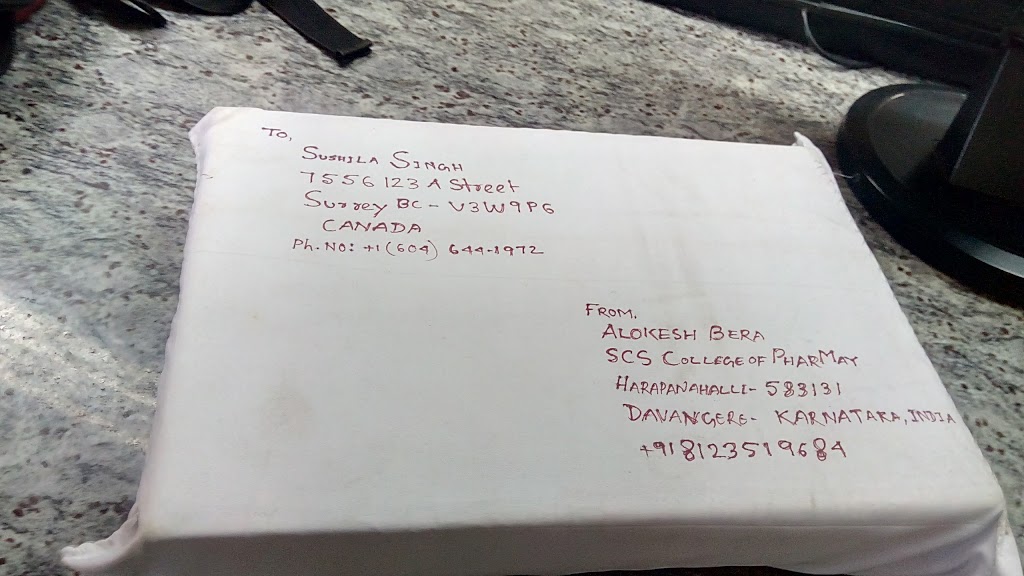 To,
SUSHILA SINGH
7556 123 A Street
Surrey BC - V3W9P6
CANADA
Ph. NO: +1 (604) 644-8972
FROM,
ALOKESH BERA
SCS COLLEGE OF PHARMAY
HARAPANAHALLI - 583131
DAVANGERE - KARNATAKA, INDIA
+918123519684